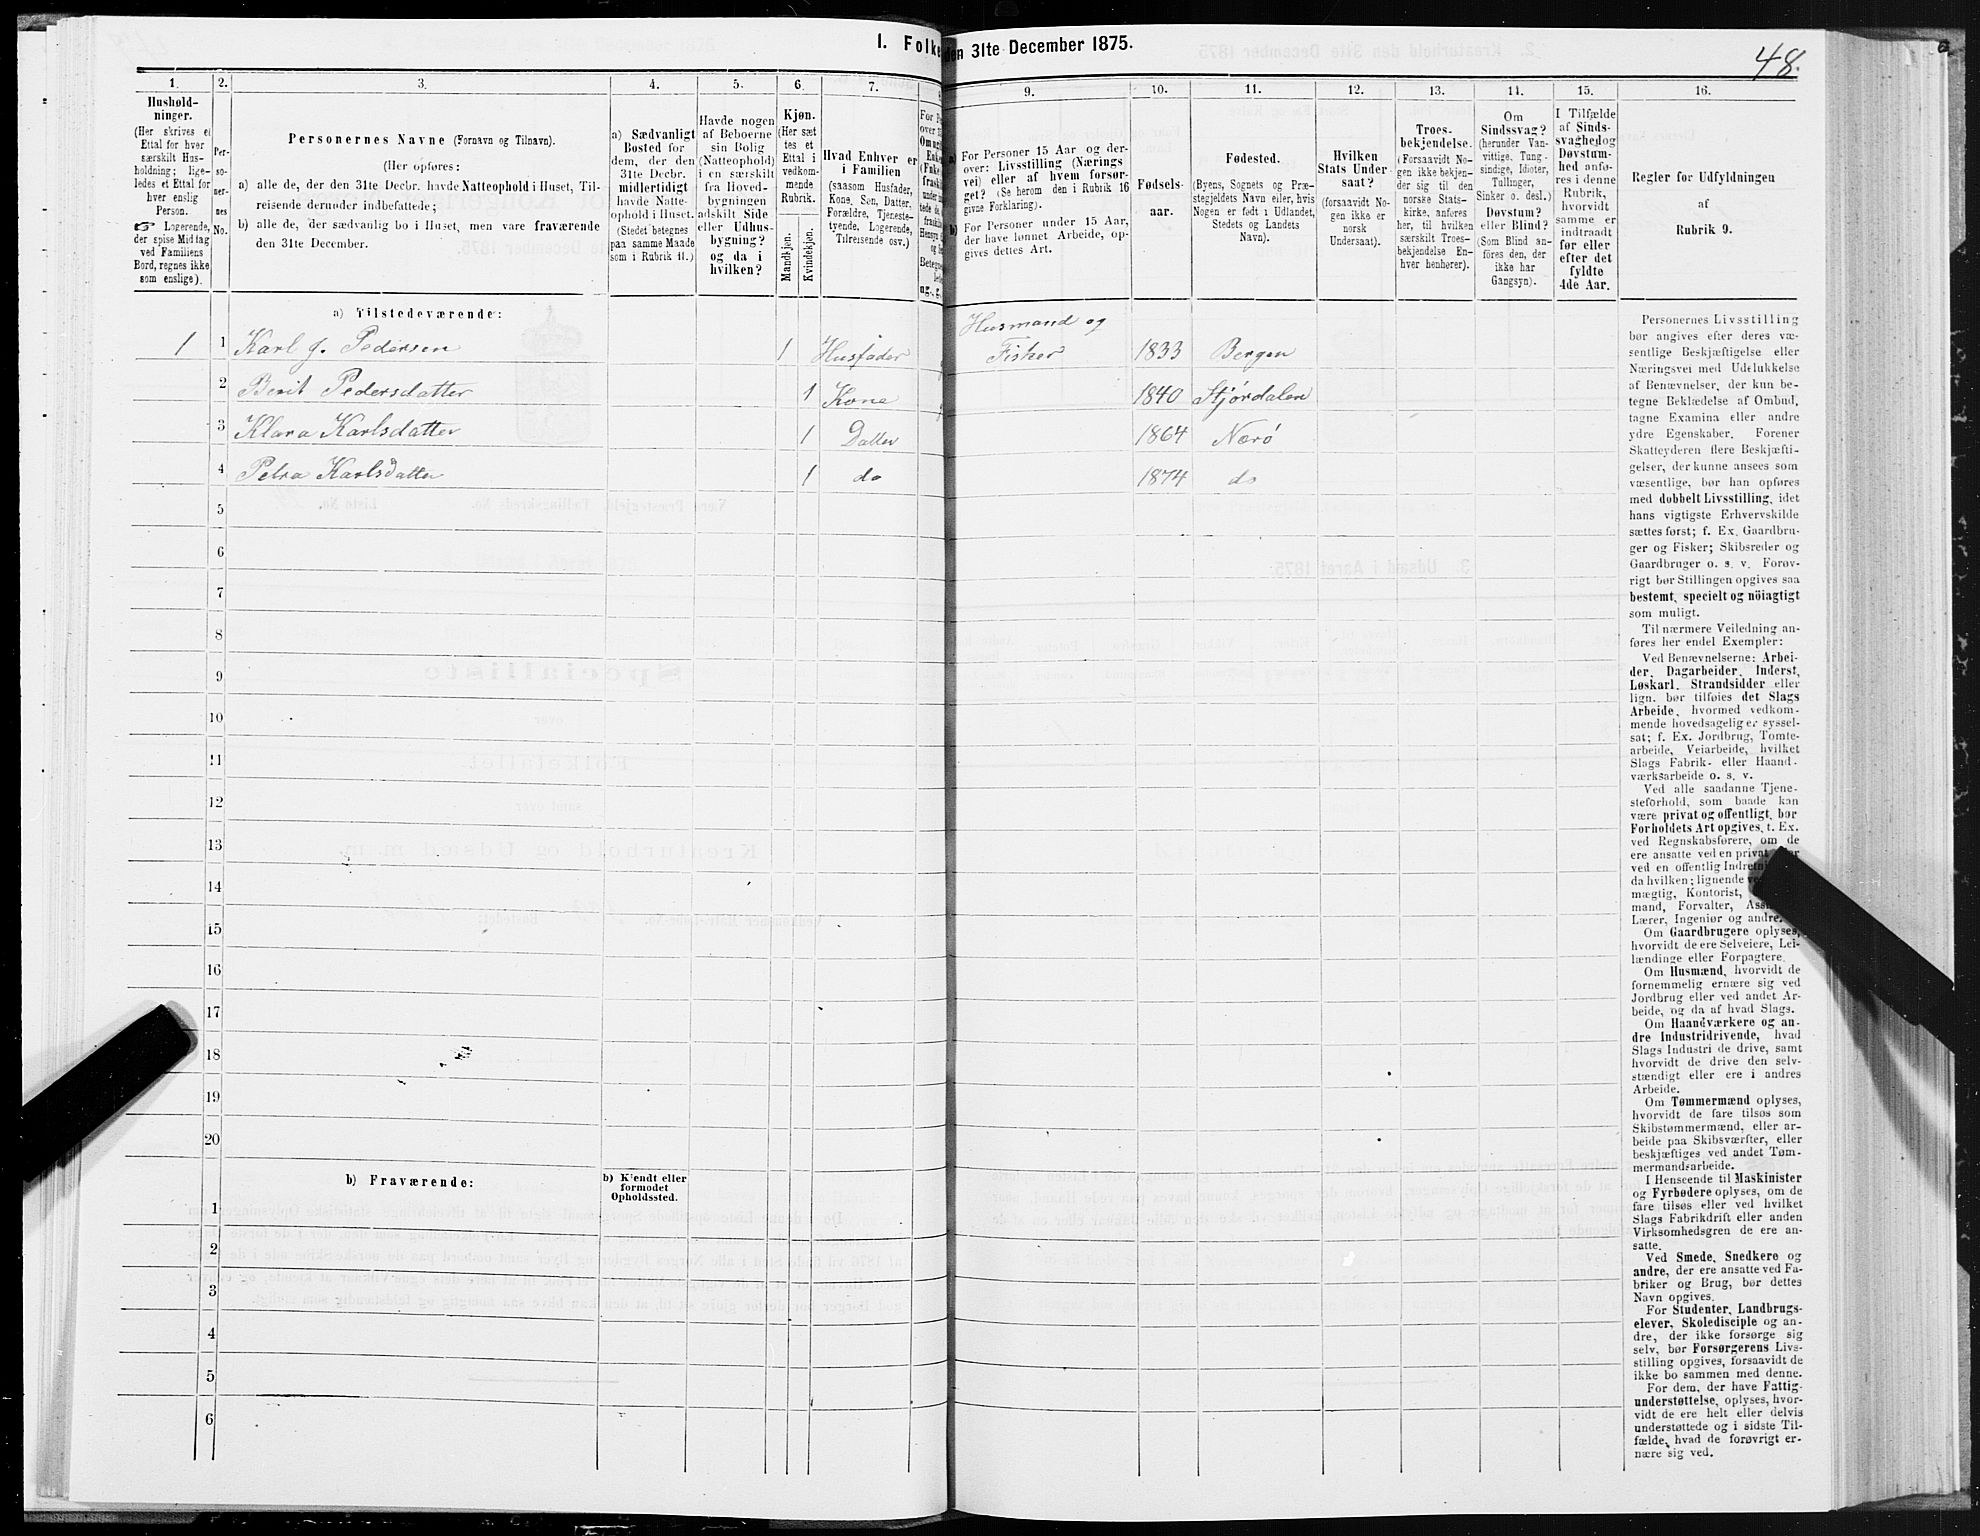 I. Folke
den 31te December 1875.
48.
1.
2.
3.
4.
5.
6.
7.
9.
10.
11.
12.
13.
14.
15.
16.
Hushold-
ninger.
(Her skrives et
Ettal for hver
særskilt Hus-
holdning; lige-
ledes et Ettal for
hver enslig
Person.
☞ Logerende,
der spise Middag
ved Familiens
Bord, regnes ikke
som enslige).
Per-
so-
ner-
nes
No.
Personernes Navne (Fornavn og Tilnavn).
(Her opføres:
a) alle de, der den 31te Decbr. havde Natteophold i Huset, Til-
reisende derunder indbefattede;
b) alle de, der sædvanlig bo i Huset, men vare fraværende
den 31te December.
a) Sædvanligt
Bosted for
dem, der den
31te Decbr.
midlertidigt
havde Natte-
ophold i Huset.
(Stedet betegnes
paa samme Maade
som i Rubrik 11.)
Havde nogen
af Beboerne
sin Bolig
(Natteophold)
i en særskilt
fra Hoved-
bygningen
adskilt Side
eller Udhus-
bygning?
og da i
hvilken?
Kjøn.
(Her sæt
tes et
Ettal i
vedkom-
mende
Rubrik.
Mandkjøn.
Kvindekjøn.
Hvad Enhver er
i Familien
(saasom Husfader,
Kone, Søn, Datter,
Forældre, Tjeneste-
tyende, Logerende,
Tilreisende osv.)
a) For Personer 15 Aar og der-
over: Livsstilling (Nærings
vei) eller af hvem forsør-
get? (Se herom den i Rubrik 16
givne Forklaring).
b) For Personer under 15 Aar,
der have lønnet Arbeide, op-
gives dettes Art.
Fødsels-
aar.
Fødested.
(Byens, Sognets og Præ-
stegjeldets Navn eller, hvis
Nogen er født i Udlandet,
Stedets og Landets
Navn).
Hvilken
Stats Under
saat?
(forsaavidt No-
gen ikke er
norsk
Undersaat).
Troes-
bekjendelse.
(Forsaavidt No-
gen ikke bekjen-
der sig til den
norske Stats-
kirke, anføres
her, til hvilken
særskilt Troes-
bekjendelse En-
hver henhører).
Om
Sindssvag?
(herunder Van-
vittige, Tung-
sindige, Idioter,
Tullinger,
Sinker o. desl.)
Døvstum?
eller Blind?
(Som Blind an-
føres den, der
ikke har
Gangsyn).
I Tilfælde
af Sinds-
svaghed og
Døvstum-
hed anfø-
res i denne
Rubrik,
hvorvidt
samme er
indtraadt
før eller
efter det
fyldte
4de Aar.
Regler for Udfyldningen
af
Rubrik 9.
a) Tilstedeværende:
Husmand og
1 1 Karl J. Pedersen 1 Husfader Fisker 1833 Bergen
2 Berit Pedersdatter 1 Kone 1840 Stjørdalen
3 Klara Karlsdatter 1 Datter 1864 Nærø
4 Petra Karlsdatter 1 do 1874 do
5
6
7
8
9
10
11
12
13
14
15
16
17
18
19
20
b) Fraværende:
b) Kjendt eller
formodet
Opholdssted.
1
2
3
4
5
6
Personernes Livsstilling
bør angives efter deres væ-
sentlige Beskjæftigelse eller
Næringsvei med Udelukkelse
af Benævnelser, der kun be-
tegne Beklædelse af Ombud,
tagne Examina eller andre
ydre Egenskaber. Forener
Skatteyderen flere Beskjæfti-
gelser, der kunne ansees som
væsentlige, bør han opføres
med dobbelt Livsstilling, idet
hans vigtigste Erhvervskilde
sættes først; f. Ex. Gaardbru-
ger og Fisker; Skibsreder og
Gaardbruger o. s. v. Forøv-
rigt bør Stillingen opgives saa
bestemt, specielt og nöiagtigt
som muligt.
Til nærmere Veiledning an-
føres her endel Exempler:
Ved Benævnelserne: Arbei-
der, Dagarbeider, Inderst,
Løskarl, Strandsidder eller
lign. bør tilføies det Slags
Arbeide, hvormed vedkom-
mende hovedsagelig er syssel-
sat; f. Ex. Jordbrug, Tomte-
arbeide, Veiarbeide, hvilket
Slags Fabrik- eller Haand-
værksarbeide o. s. v.
Ved alle saadanne Tjene-
steforhold, som baade kan
være privat og offentligt, bør
Forholdets Art opgives, t. Ex.
ved Regnskabsførere, om de
ere ansatte ved en privat
ved en offentlig
da hvilken; lignende
mægtig, Kontorist,
mand, Forvalter,
Lærer, Ingeniør og andre.
Om Gaardbrugere oplyses,
hvorvidt de ere Selveiere, Lei-
lændinge eller Forpagtere.
Om Husmænd, hvorvidt de
fornemmelig ernære sig ved
Jordbrug eller ved andet Ar-
beide, og da af hvad Slags.
Om Haandværkere og an-
dre Industridrivende, hvad
Slags Industri de drive, samt
hvorvidt de drive den selv-
stændigt eller ere i andres
Arbeide.
Om Tømmermænd oplyses,
hvorvidt de fare tilsøs som
Skibstømmermænd, eller ar-
beide paa Skibsværfter, eller
beskjæftiges ved andet Tøm-
mermandsarbeide.
I Henseende til Maskinister
og Fyrbødere oplyses, om de
fare tilsøs eller ved hvilket
Slags Fabrikdrift eller anden
Virksomhedsgren de ere an-
satte.
Ved Smede, Snedkere og
andre, der ere ansatte ved Fa-
briker og Brug, bør dettes
Navn opgives.
For Studenter, Landbrugs-
elever, Skoledisciple og an-
dre, der ikke forsørge sig
selv, bør Forsørgerens Livs-
stilling opgives, forsaavidt de
ikke bo sammen med denne.
For dem, der have Fattig-
understøttelse, oplyses, hvor-
vidt de ere helt eller delvis
understøttede og i sidste Til-
fælde, hvad de forøvrigt er-
nære sig ved.